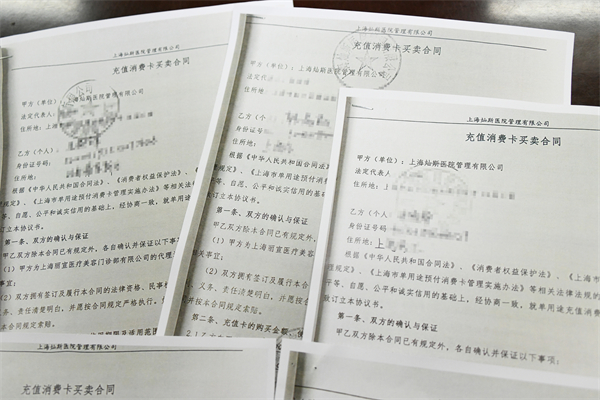 上海灿斯医院管理有限公司
充值消费卡买卖合同
甲方（单位）：上海
法定代表人：
住所地：上海
乙方（个人）
身份证号码：
住所地：
根据《中华人民共和国合同法》、《消
规定》、《上海市单用途预付消费卡管理实施办法》等相关
等、自愿、公平和诚实信用的基础上，经协商一致，就单用
订立本协议书。
第一条、双方的确认与保证
甲乙双方除本合同已有规定外，各自确认并保证以下事
（1）甲方为上海丽宜医疗美容门诊部有限公司的代理
关事宜；
（2）双方拥有签订及履行本合同的法律资格、民事权
义务、责任清楚明白，并愿按合同规定严格执行，
同规定索赔。
上海灿斯医院管理有限公司
充值消费卡买卖合同
甲方（单位）：上海灿斯医院管理有限公司
法定代表
住所地：上海
乙方（个人）
身份证号
住所地：
根据《中华人民共和国合同法》
规定》、《上海市单用途预付消费
等、自愿、公平和诚实信用的
订立本协议书。
第一条、双方的确认与保证
甲乙双方除本合同已有规定外，
（1）甲方为上海丽宜医疗美
关事宜；
（2）双方拥有签订及履行本合
义务、责任清楚明白，并愿按合
并按本合同规定索赔。
第二条、充值卡的购买金额、
上海灿斯医院管理有限公司
充值消费卡买卖合同
甲方（单位）：上海灿斯医院管理有限公司
法定代表人
住所地：上海
乙方（个人
身份证号码
住所地：上
根据《中华人民共和国合同法》、《消费者权益保护法》、《上海市
规定》、《上海市单用途预付消费卡管理实施办法》等相关法律法规的
等、自愿、公平和诚实信用的基础上，经协商一致，就单用途充值消费
订立本协议书。
第一条、双方的确认与保证
甲乙双方除本合同已有规定外，各自确认并保证以下事项：
上海灿斯医院管理有限公司
充值消费卡买卖合同